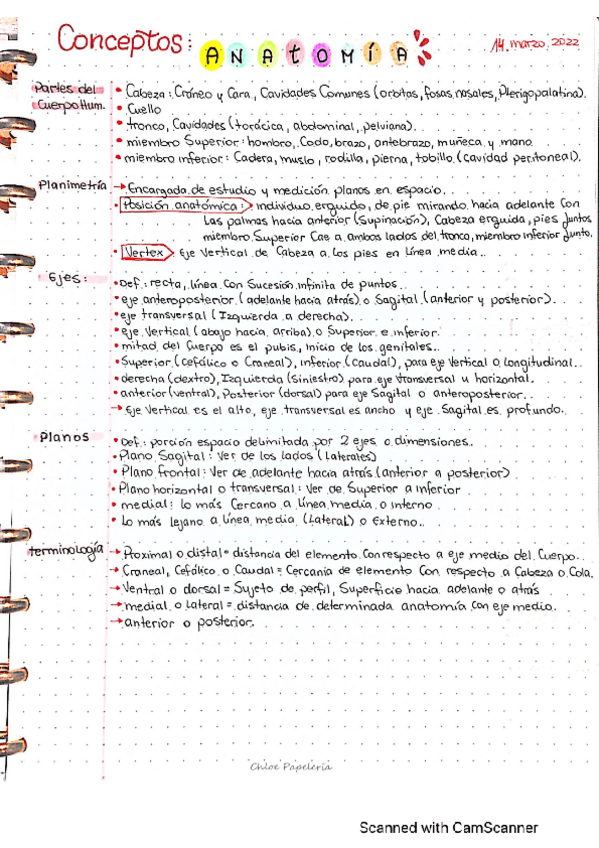 Conceptos: ANATOMÍA
14. marzo. 2022
Partes del
Cuerpo Hum.
• Cabeza: Cráneo y Cara, Cavidades Comunes (orbitas, fosas nasales, Pterigopalatina).
• Cuello
• tronco, Cavidades (torácica, abdominal, pelviana).
• miembro Superior: hombro, Codo, brazo, antebrazo, muñeca y mano
• miembro inferior: Cadera, muslo, rodilla, pierna, tobillo. (cavidad peritoneal).
Planimetría
→ Encargada de estudio y medición planos en espacio..
• Posición anatómica > individuo erguido, de pie mirando hacia adelante con
Las palmas hacia anterior (Supinación), Cabeza erguida, pies Juntos
miembro Superior Cae a ambos lados del tronco, miembro inferior Junto.
• Vertex > Eje Vertical de Cabeza a los pies en línea media..
Ejes:
• Def.: recta, línea con Sucesión infinita de puntos..
• eje anteroposterior (adelante hacia atrás) o Sagital (anterior y posterior).
• eje transversal (Izquierda a derecha).
• eje Vertical (abajo hacia arriba) o Superior e inferior.
• mitad del Cuerpo es el pubis, inicio de los genitales..
• Superior (cefálico o Craneal), inferior (Caudal), para eje Vertical o longitudinal..
• derecha (dextro), Izquierda (siniestro) para eje transversal u horizontal.
• anterior (ventral), Posterior (dorsal) para eje Sagital o anteroposterior.
→ Eje Vertical es el alto, eje transversal es ancho y eje Sagital es profundo.
Planos
• Def.: porción espacio delimitada por 2 ejes o dimensiones..
• Plano Sagital: Ver de los lados (Laterales)
• Plano frontal: Ver de adelante hacia atrás (anterior a posterior)
• Plano horizontal o transversal: Ver de Superior a inferior
• medial: lo más Cercano a línea media o interno
• Lo más lejano a línea media (Lateral) o Externo..
terminología
→ Proximal o distal = distancia del elemento Con respecto a eje medio del Cuerpo..
→ Craneal, Cefálico o Caudal = Cercania de elemento Con respecto a Cabeza o Cola.
→ Ventral o dorsal = Sujeto de perfil, Superficie hacia adelante o atrás
→ medial o Lateral = distancia de determinada anatomía con eje medio.
→ anterior o posterior.
Chloe Papelería
Scanned with CamScanner